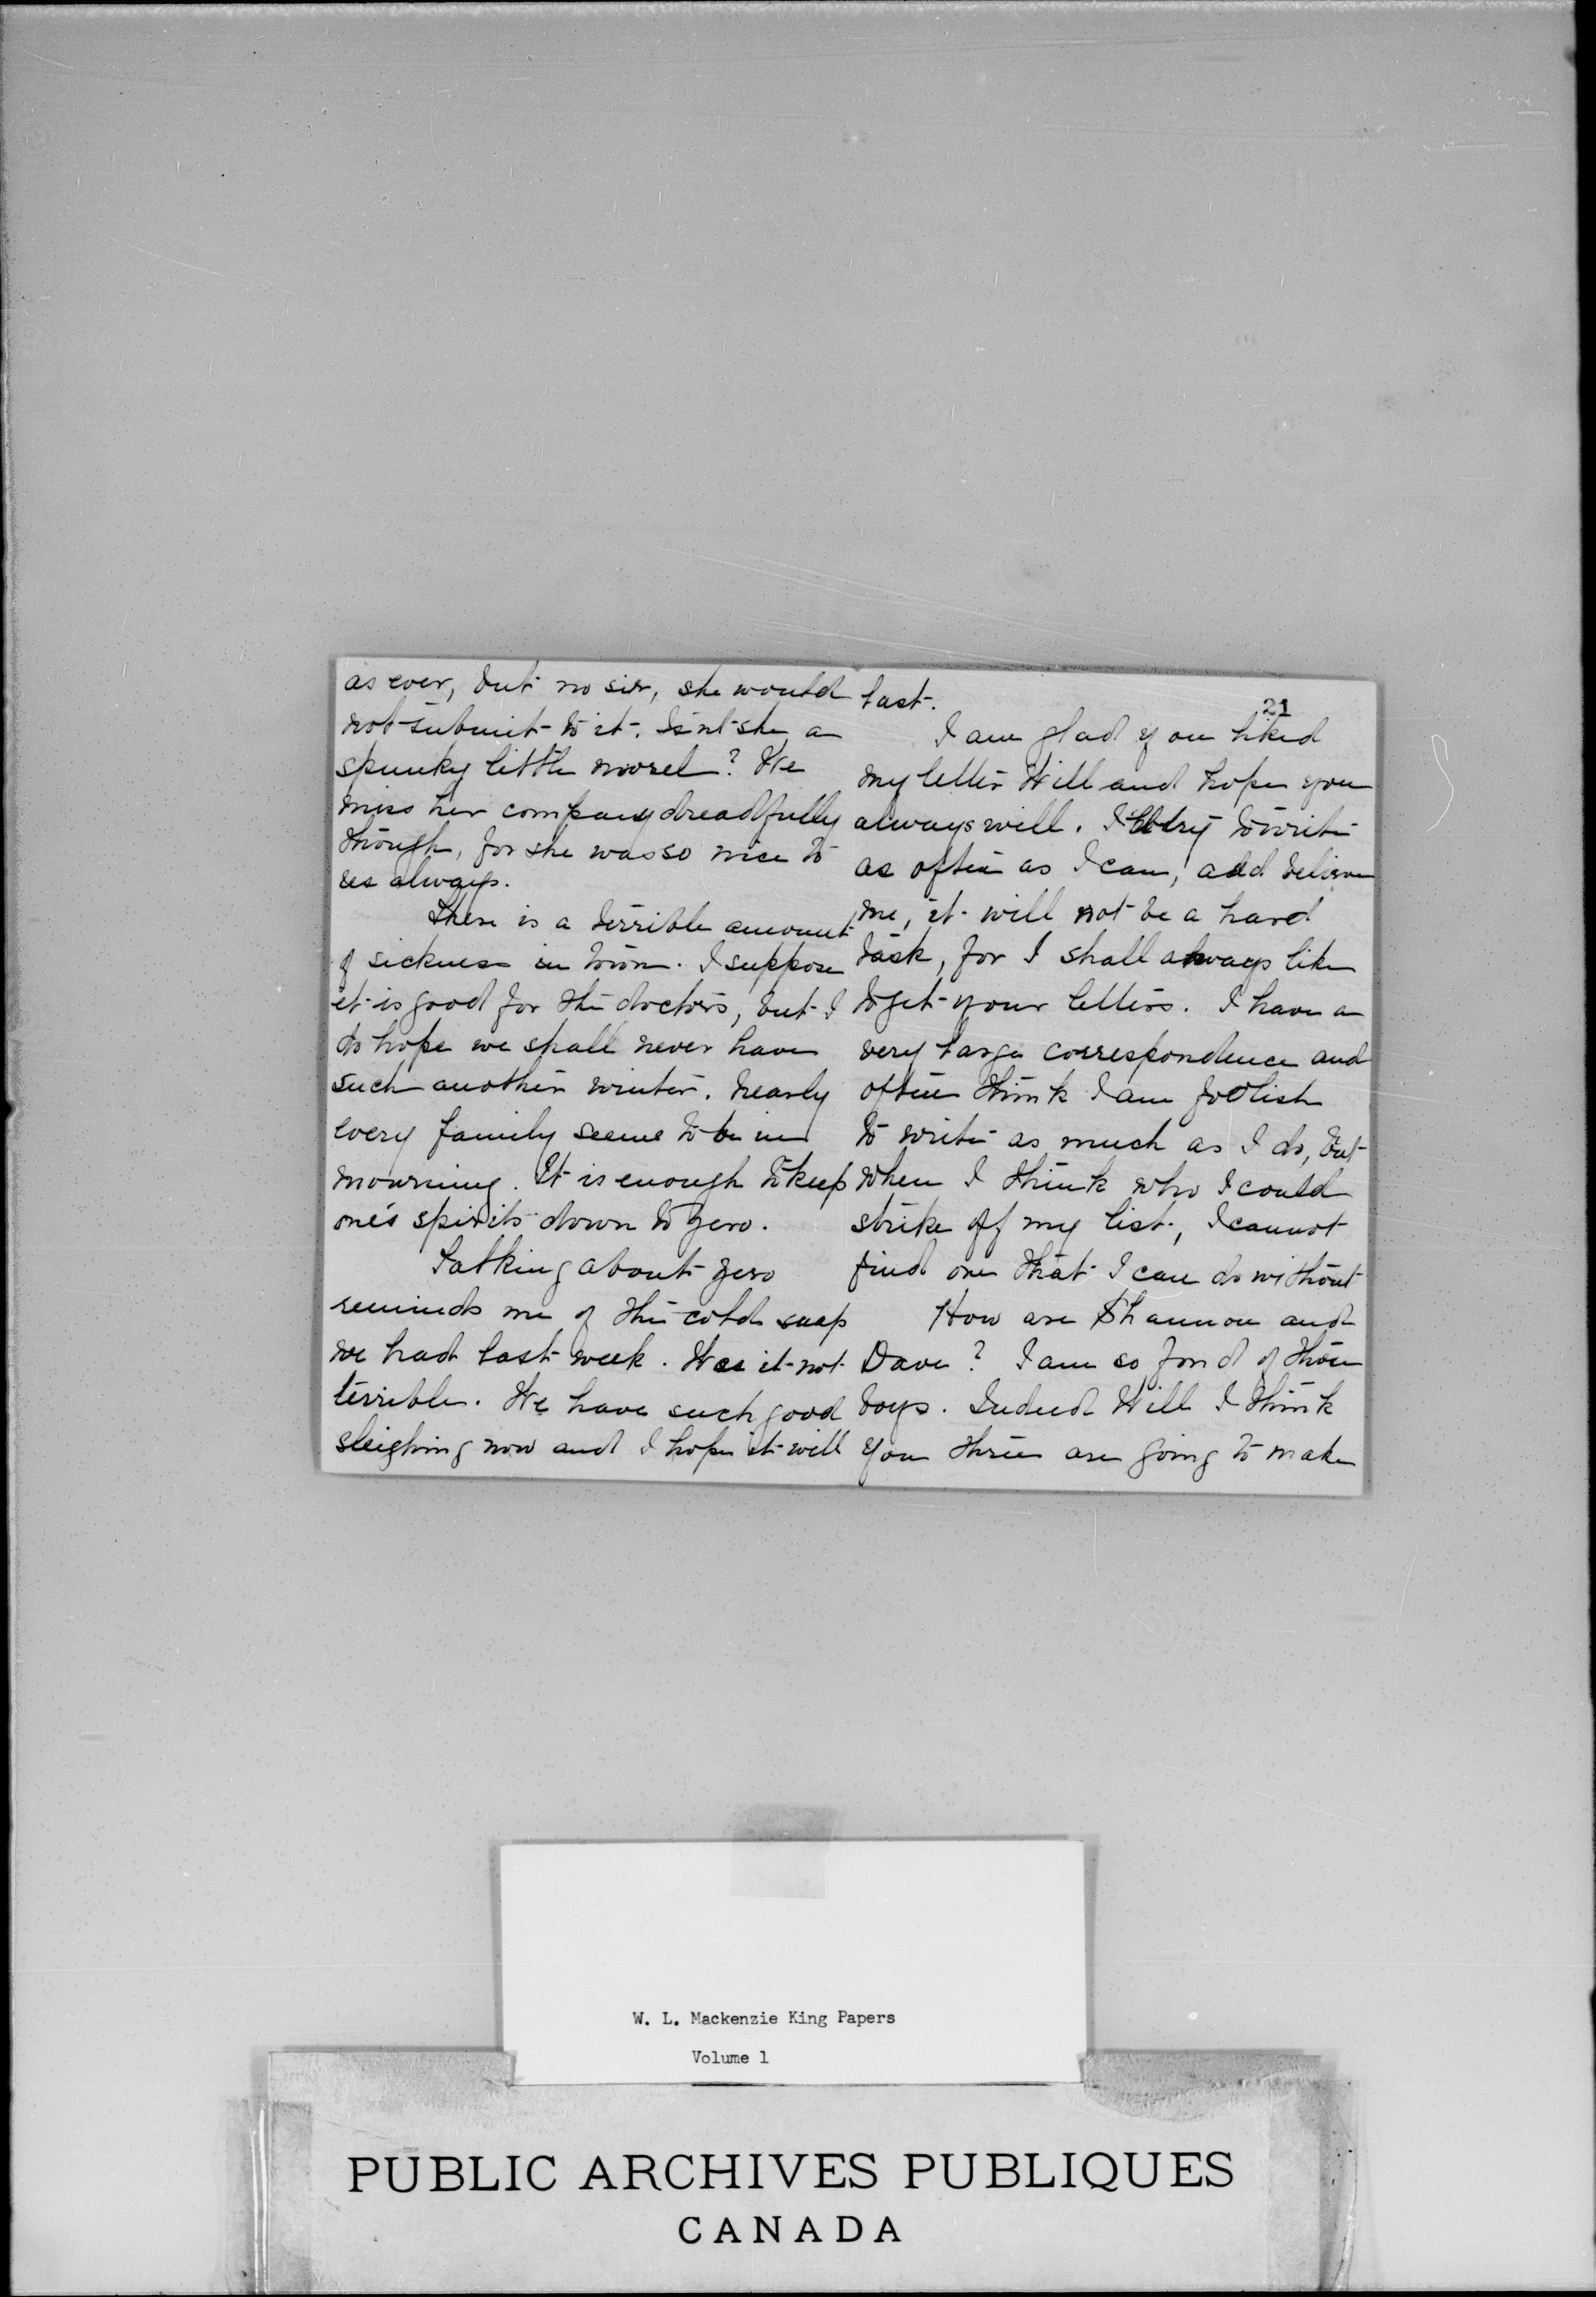 as ever, but no sir, she would
not submit to it. Isn't she a
spunky little morsel? We
miss her company dreadfully
though, for she was so nice to
us always.
There is a terrible amount
of sickness in town. I suppose
it is good for the doctors, but I
do hope we shall never have
such another winter. Nearly
every family seems to be in
mourning. It is enough to keep
one's spirits down to zero.
Talking about zero
reminds me of the cold snap
we had last week. Was it not
terrible. We have such good
sleighing now and I hope it will
last.
21
I am glad you liked
my letter Will and hope you
always will. I try to write
as often as I can, and believe
me, it will not be a hard
task, for I shall always like
to get your letters. I have a
very large correspondence and
often think I am foolish
to write as much as I do, but
when I think who I could
strike off my list, I cannot
find one that I can do without
How are Shannon and
Dave? I am so fond of those
boys. Indeed Will I think
you three are going to make
W. L. Mackenzie King Papers
Volume 1
PUBLIC ARCHIVES PUBLIQUES
CANADA